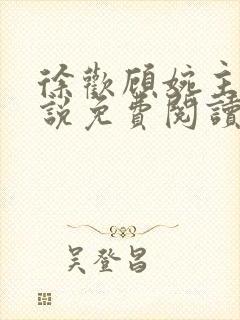 徐歡顧婉主
說免費閱讀
吳登昌